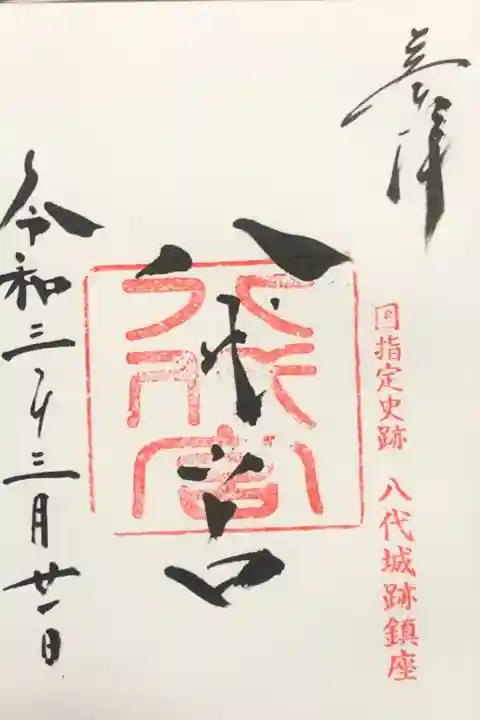 奉拝
国指定史跡 八代城跡鎮座
八代宮
八代宮
令和三年三月廿一日